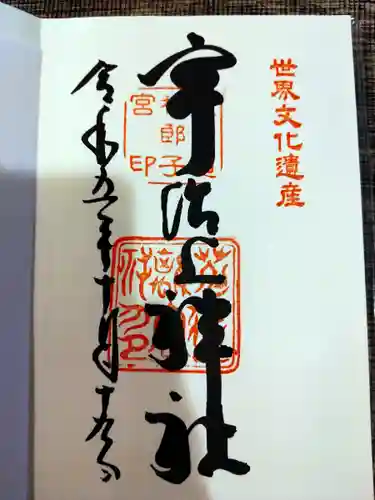 世界文化遺産
宇治上神社
令和五年十月十五日